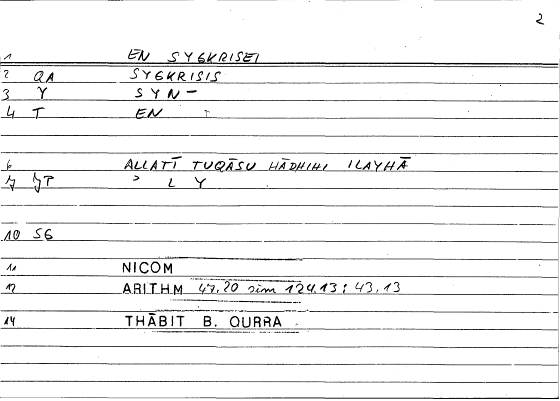 2
1 EN SYGKRISEI
2 QA SYGKRISIS
3 Y SYN-
4 T EN
6 ALLATĪ TUQĀSU HĀDHIHI ILAYHĀ
7 JP ʾ L Y
10 SG
11 NICOM
12 ARITHM 47.20 sim 124.13; 43.13
14 THĀBIT B. QURRA